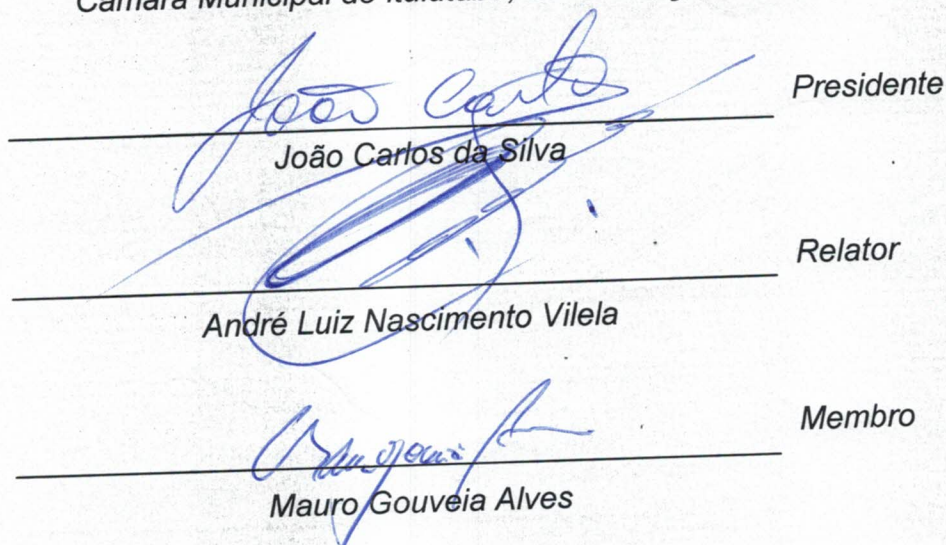 Câmara Municipal de
João Carlos
Presidente
João Carlos da Silva
Relator
André Luiz Nascimento Vilela
Membro
Mauro Gouveia Alves